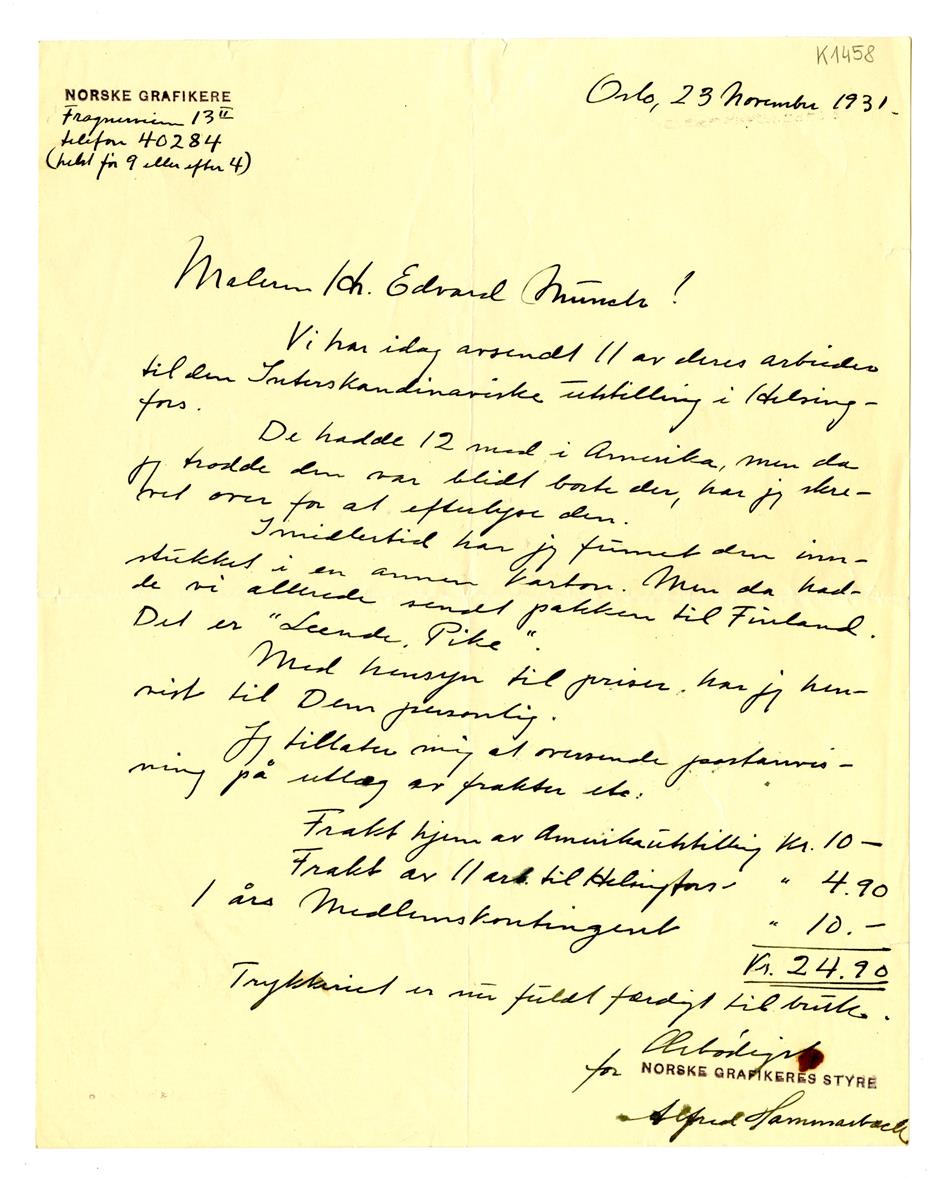 K1458
NORSKE GRAFIKERE
Frognerveien 13 II
telefon 40284
(helst før 9 eller efter 4)
Oslo, 23 November 1931.
Maleren Hr. Edvard Munch!
Vi har idag avsendt 11 av deres arbieder
til den Interskandinaviske utstilling i Helsing-
fors.
De hadde 12 med i Amerika, men da
jeg trodde den var blidt borte der, har jeg skre-
vet over for at efterlyse den.
Imidlertid har jeg funnet den inn-
stukket i en annen karton. Men da had-
de vi allerede sendt pakken til Finland.
Det er "Leende, Pike".
Med hensyn til priser, har jeg hen-
vist til Dem personlig.
Jeg tillater mig at oversende postanvis-
ning på utlæg av frakter etc.
Frakt hjem av Amerikautstilling Kr. 10 —
Frakt av 11 arb. til Helsingfors - " 4.90
1 års Medlemskontingent " 10. —
Kr. 24.90
Trykkeriet er nu fuldt færdigt til bruk.
Ærbødigst
for NORSKE GRAFIKERES STYRE
Alfred Hammarbäck